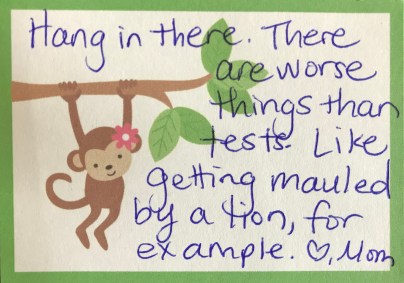 Hang in there. There
are worse
things than
tests. Like
getting mauled
by a lion, for
example. ♡, Mom